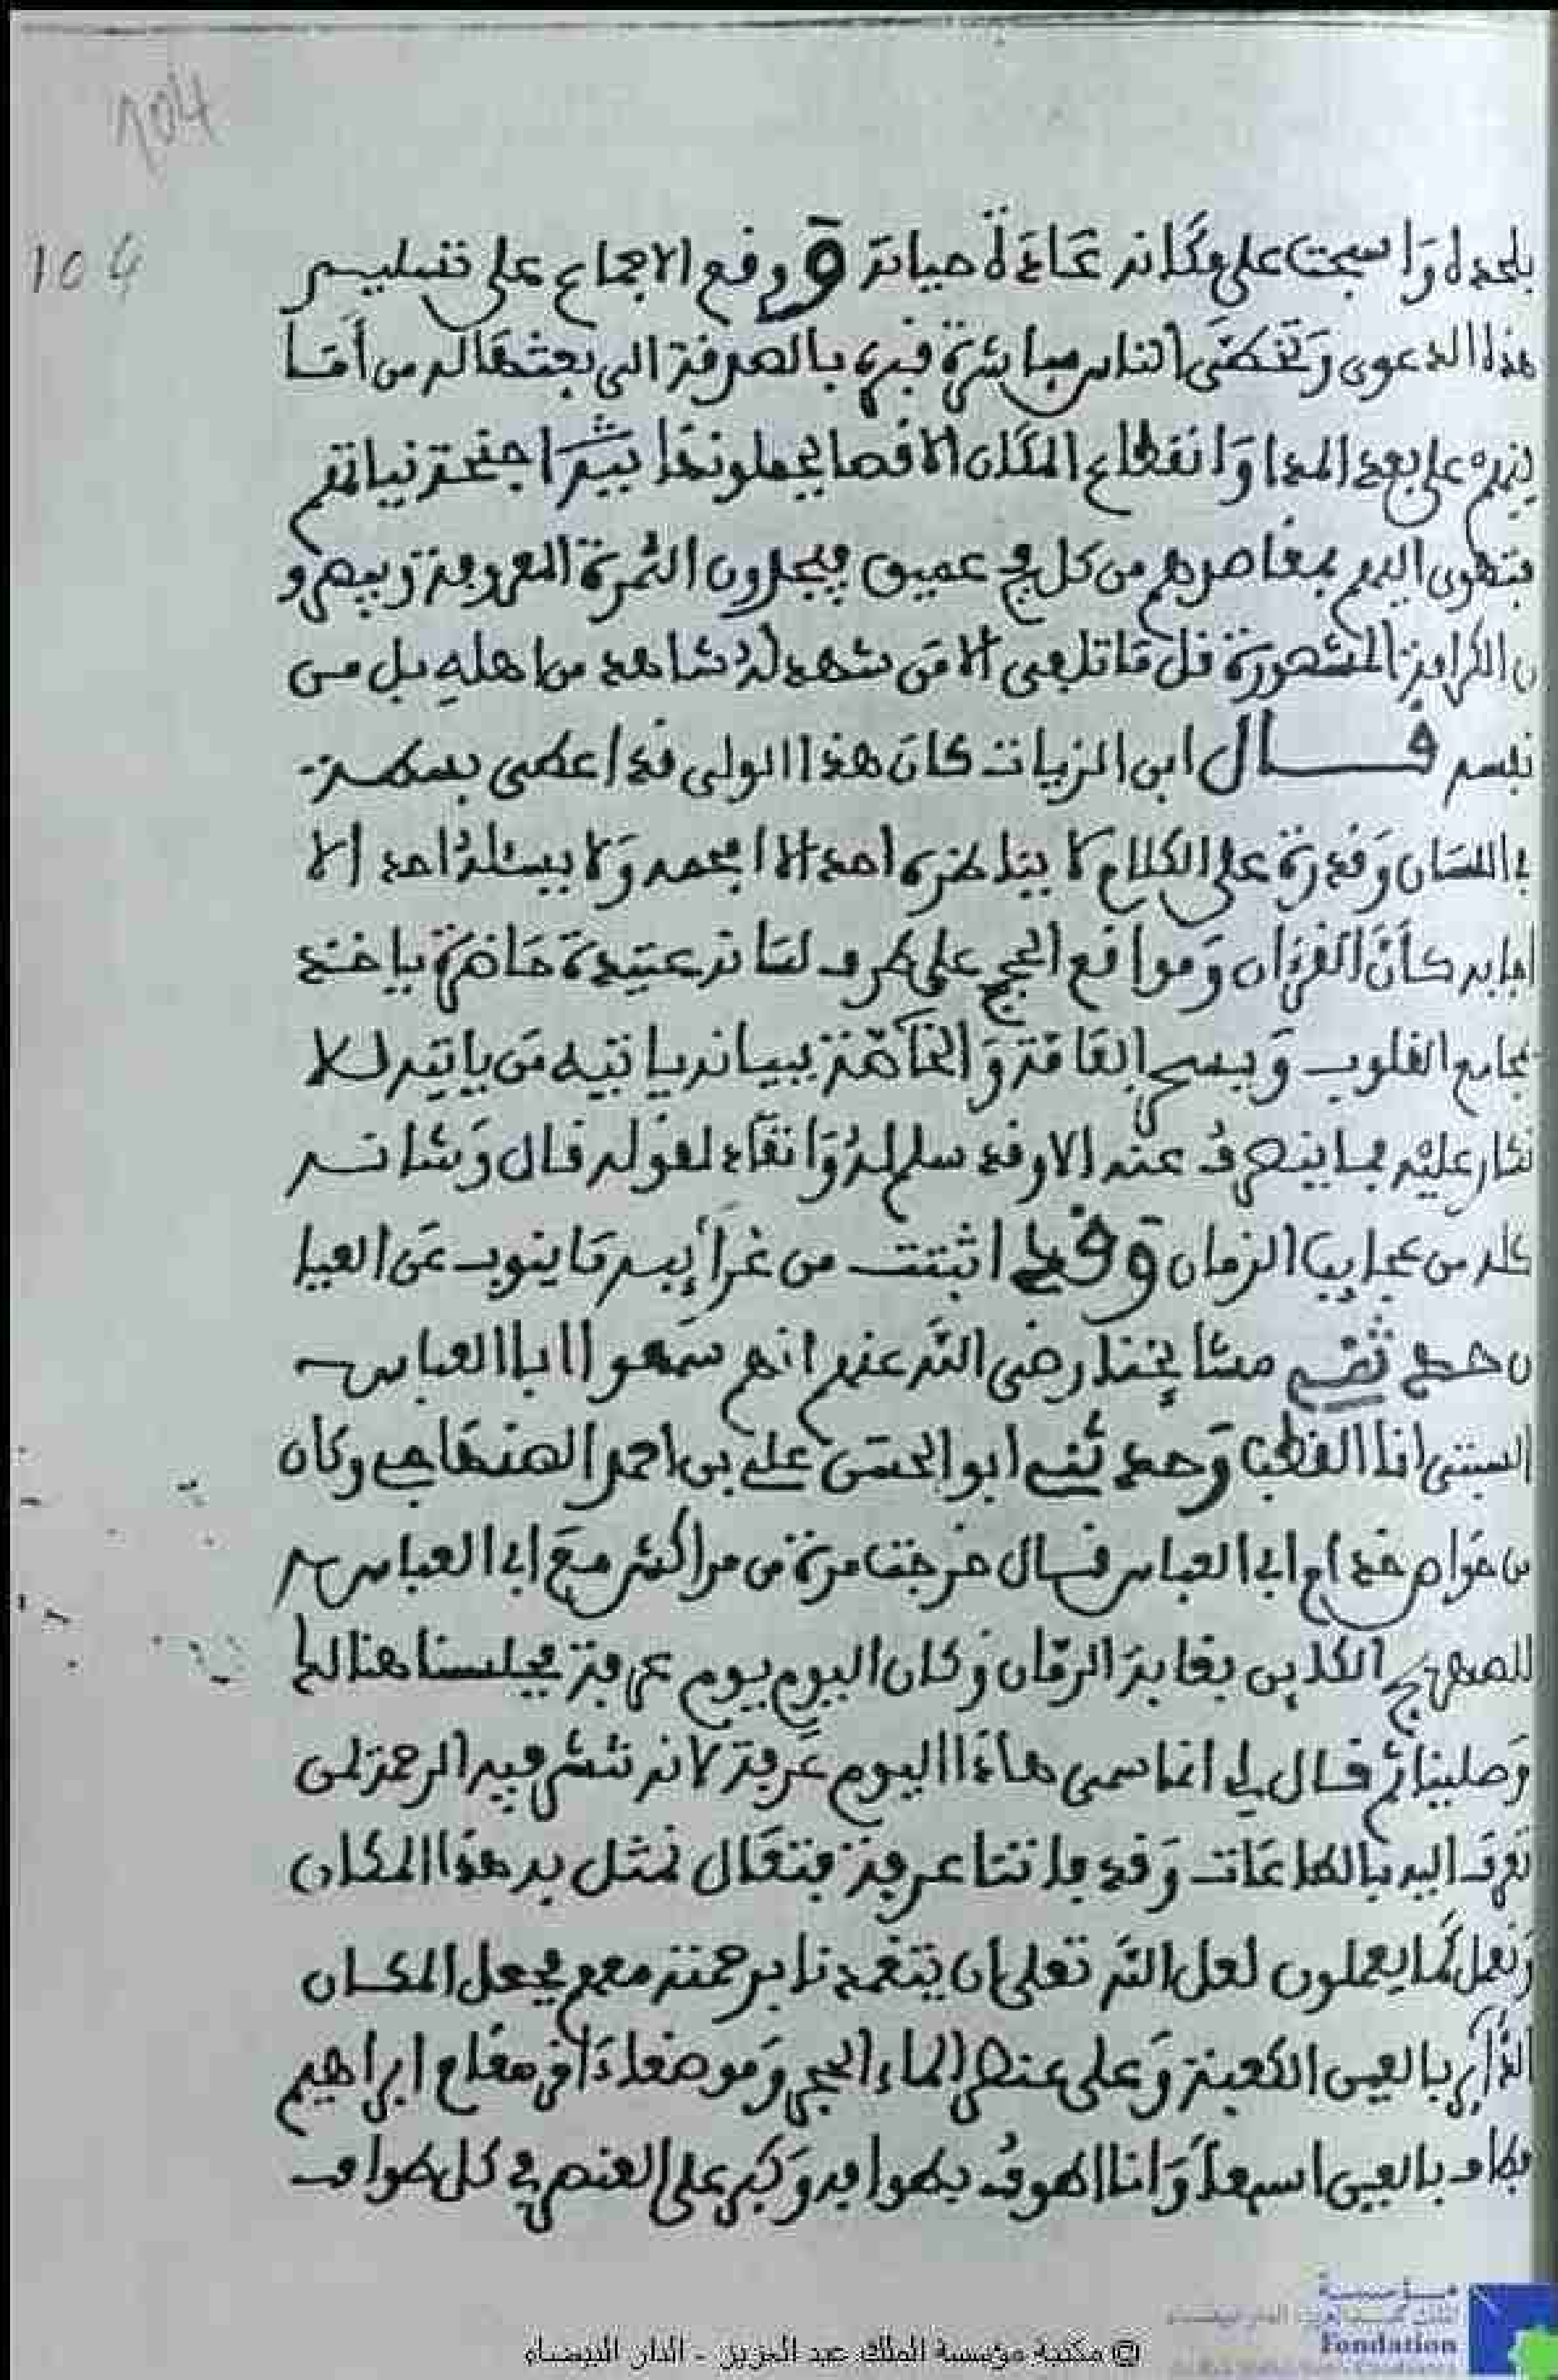 104
104
بلحده وانسحبت على مكانه عادة حياته ووقع الاجماع على تسليم
هذه الدعوى وتخطى الناس مباشرة قبره بالصدقة الى بعثها له من اما
كنهم على بعد المدا وانقطاع المكان الافصا يحملونها بين اجنحة نياتهم
فتهوى اليهم بمقاصدهم من كل فج عميق فيجدون الثمرة المعروفة ويبصرو
ن الكرامة المشهورة قل ما تلفى الا من شهد له شاهد من اهله بل من
نفسه قال ابن الزيات كان هذا الولى قد اعطى بسطة
في اللسان وقدرة على الكلام لا يناظره احد الا افحمه ولا يسئله احد الا
اجابه كأن القرءان ومواقع الحجج على طرف لسانه عتيدة حاضرة ياخذ
بمجامع القلوب ويسحر العامة والخاصة ببيانه ياتيه من ياتيه للا
نكار عليه فما ينصرف عنه الا وقد سلم له وانقاد لقوله قال وشانه
كله من عجايب الزمان وقد اثبتت من غرائبه ما ينوب عن العيا
ن حدثني مشايخنا رضى الله عنهم انهم سمعوا ابا العباس
السبتى انا القطب وحدثني ابو الحسن علي بن احمد الصنهاجي وكان
من خواص خدام ابي العباس قال خرجت مرة من مراكش مع ابي العباس
للصهريج الكاين بغابة الرمان وكان اليوم يوم عرفة فجلسنا هنالك
وصلينا ثم قال لي انما سمى هاذا اليوم عرفة لانه تنتشر فيه الرحمة لمن
تعرف اليه بالطاعات وقد فاتتنا عرفة فتعال نمثل به هذا المكان
ونعمل كما يعملون لعل الله تعلى ان يتغمدنا برحمته معهم فجعل المكان
الداير بالعين الكعبة وعلى عنصر الماء الحجر وموضعا ءاخر مقام ابراهيم
فطاف بالعين اسبعا وانا اطوف بطوافه وكبر على العنصر في كل طواف
© مكتبة مؤسسة الملك عبد العزيز - الدار البيضاء
مؤسسة
Fondation